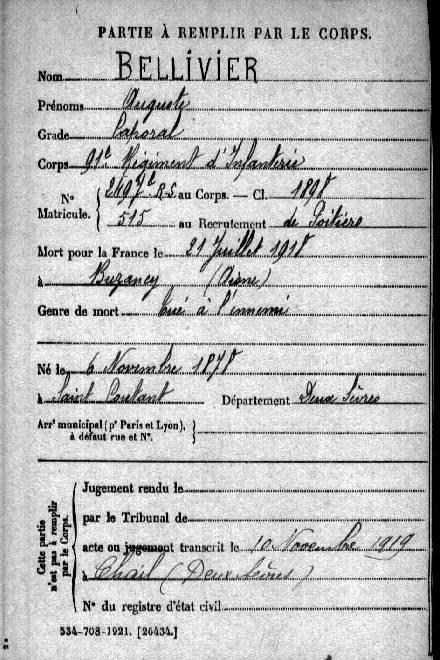 PARTIE À REMPLIR PAR LE CORPS.
Nom BELLIVIER
Prénoms Auguste
Grade Caporal
Corps 91e Régiment d'Infanterie
No Matricule. { au Corps. — Cl. 1898
515 au Recrutement de Poitiers
Mort pour la France le 21 Juillet 1918
à Buzancy (Aisne)
Genre de mort Tué à l'ennemi
Né le 6 Novembre 1878
à Saint Coutant Département Deux Sèvres
Arrt municipal (pr Paris et Lyon),
à défaut rue et No.
Cette partie n'est pas à remplir par le Corps.
Jugement rendu le
par le Tribunal de
acte ou jugement transcrit le 10 Novembre 1919
à Chail (Deux Sèvres)
No du registre d'état civil
534-708-1921. [26434.]